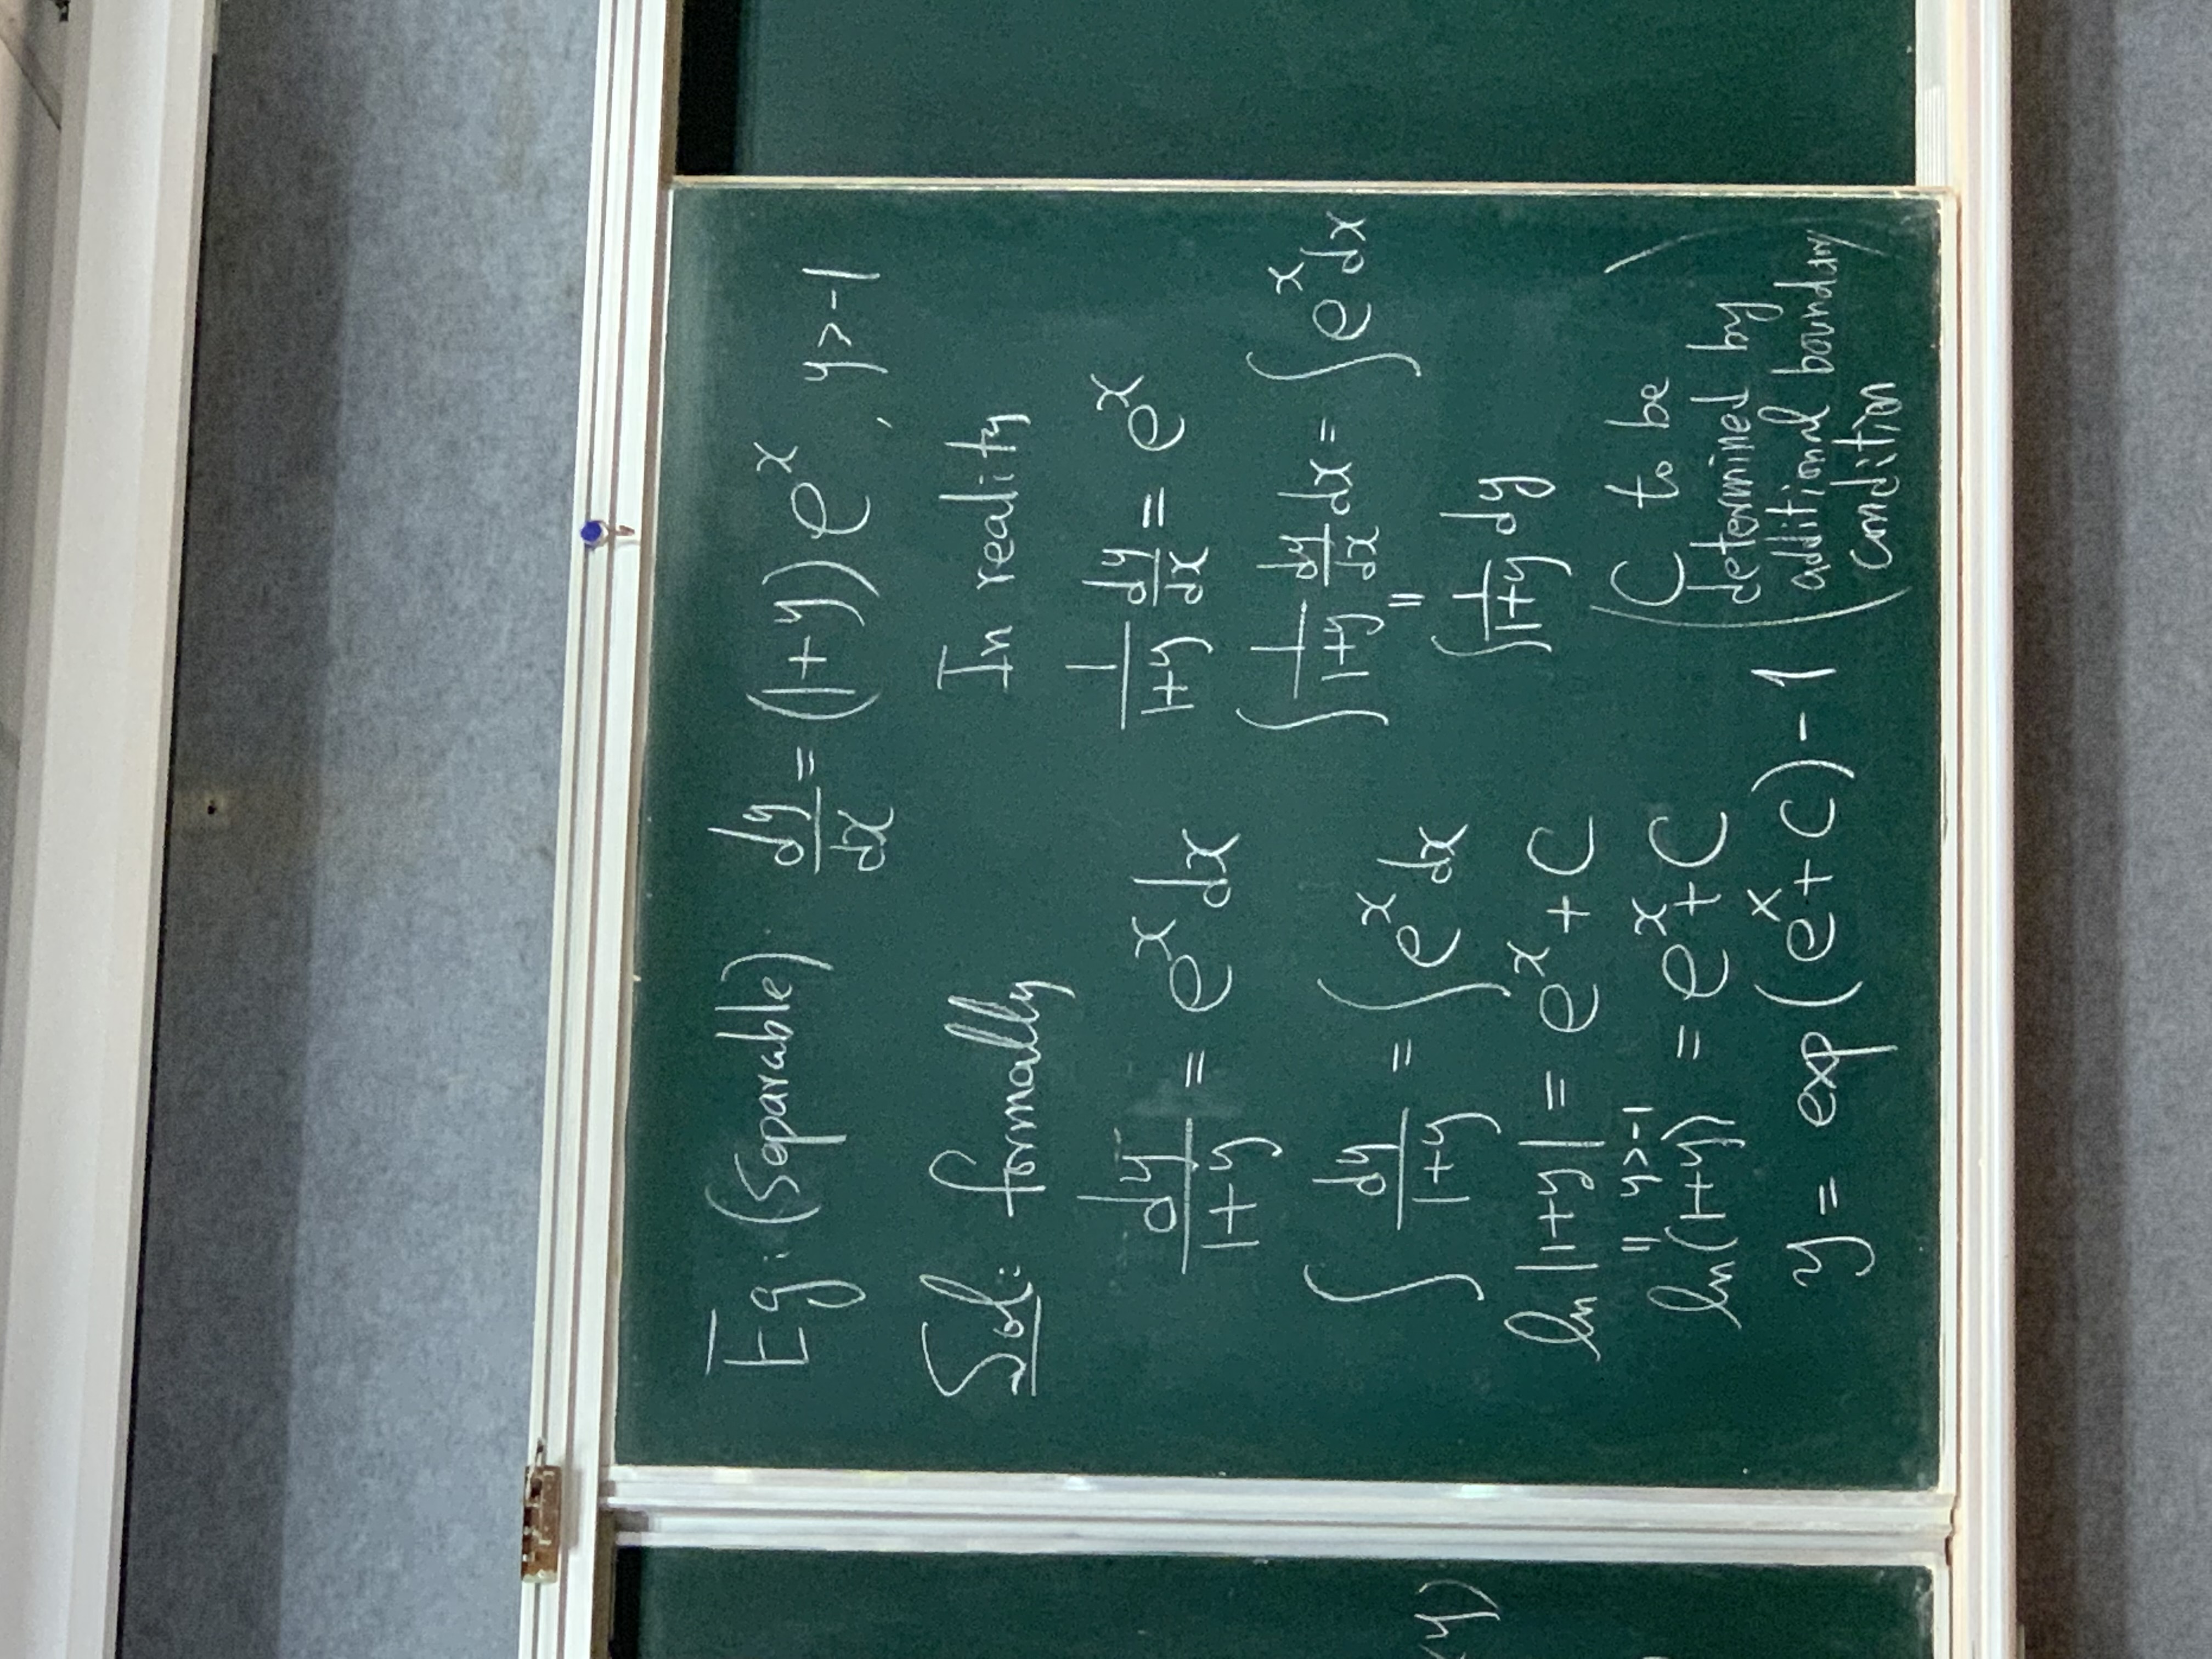 Eg: (Separable) dy/dx = (1+y) e^x , y > -1
Sol: formally
dy/(1+y) = e^x dx
∫ dy/(1+y) = ∫ e^x dx
ln |1+y| = e^x + C
|| y>-1
ln(1+y) = e^x + C
y = exp(e^x + C) - 1
In reality
1/(1+y) dy/dx = e^x
∫ 1/(1+y) dy/dx dx = ∫ e^x dx
||
∫ 1/(1+y) dy
(C to be
determined by
additional boundary
condition)
y)